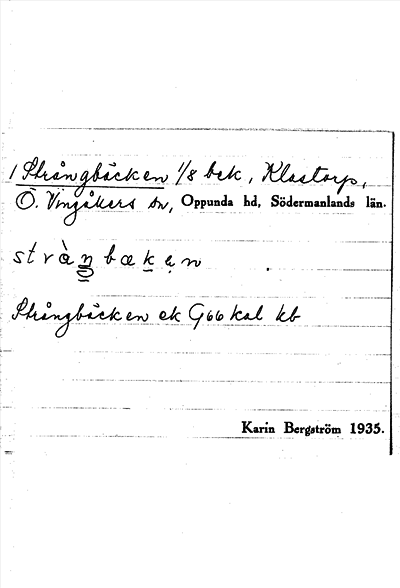 1 Strångbäcken 1/8 bek, Klastorp,
Ö. Vingåkers sn, Oppunda hd, Södermanlands län.
stràŋbækęn
Strångbäcken ek G66 kal kb
Karin Bergström 1935.